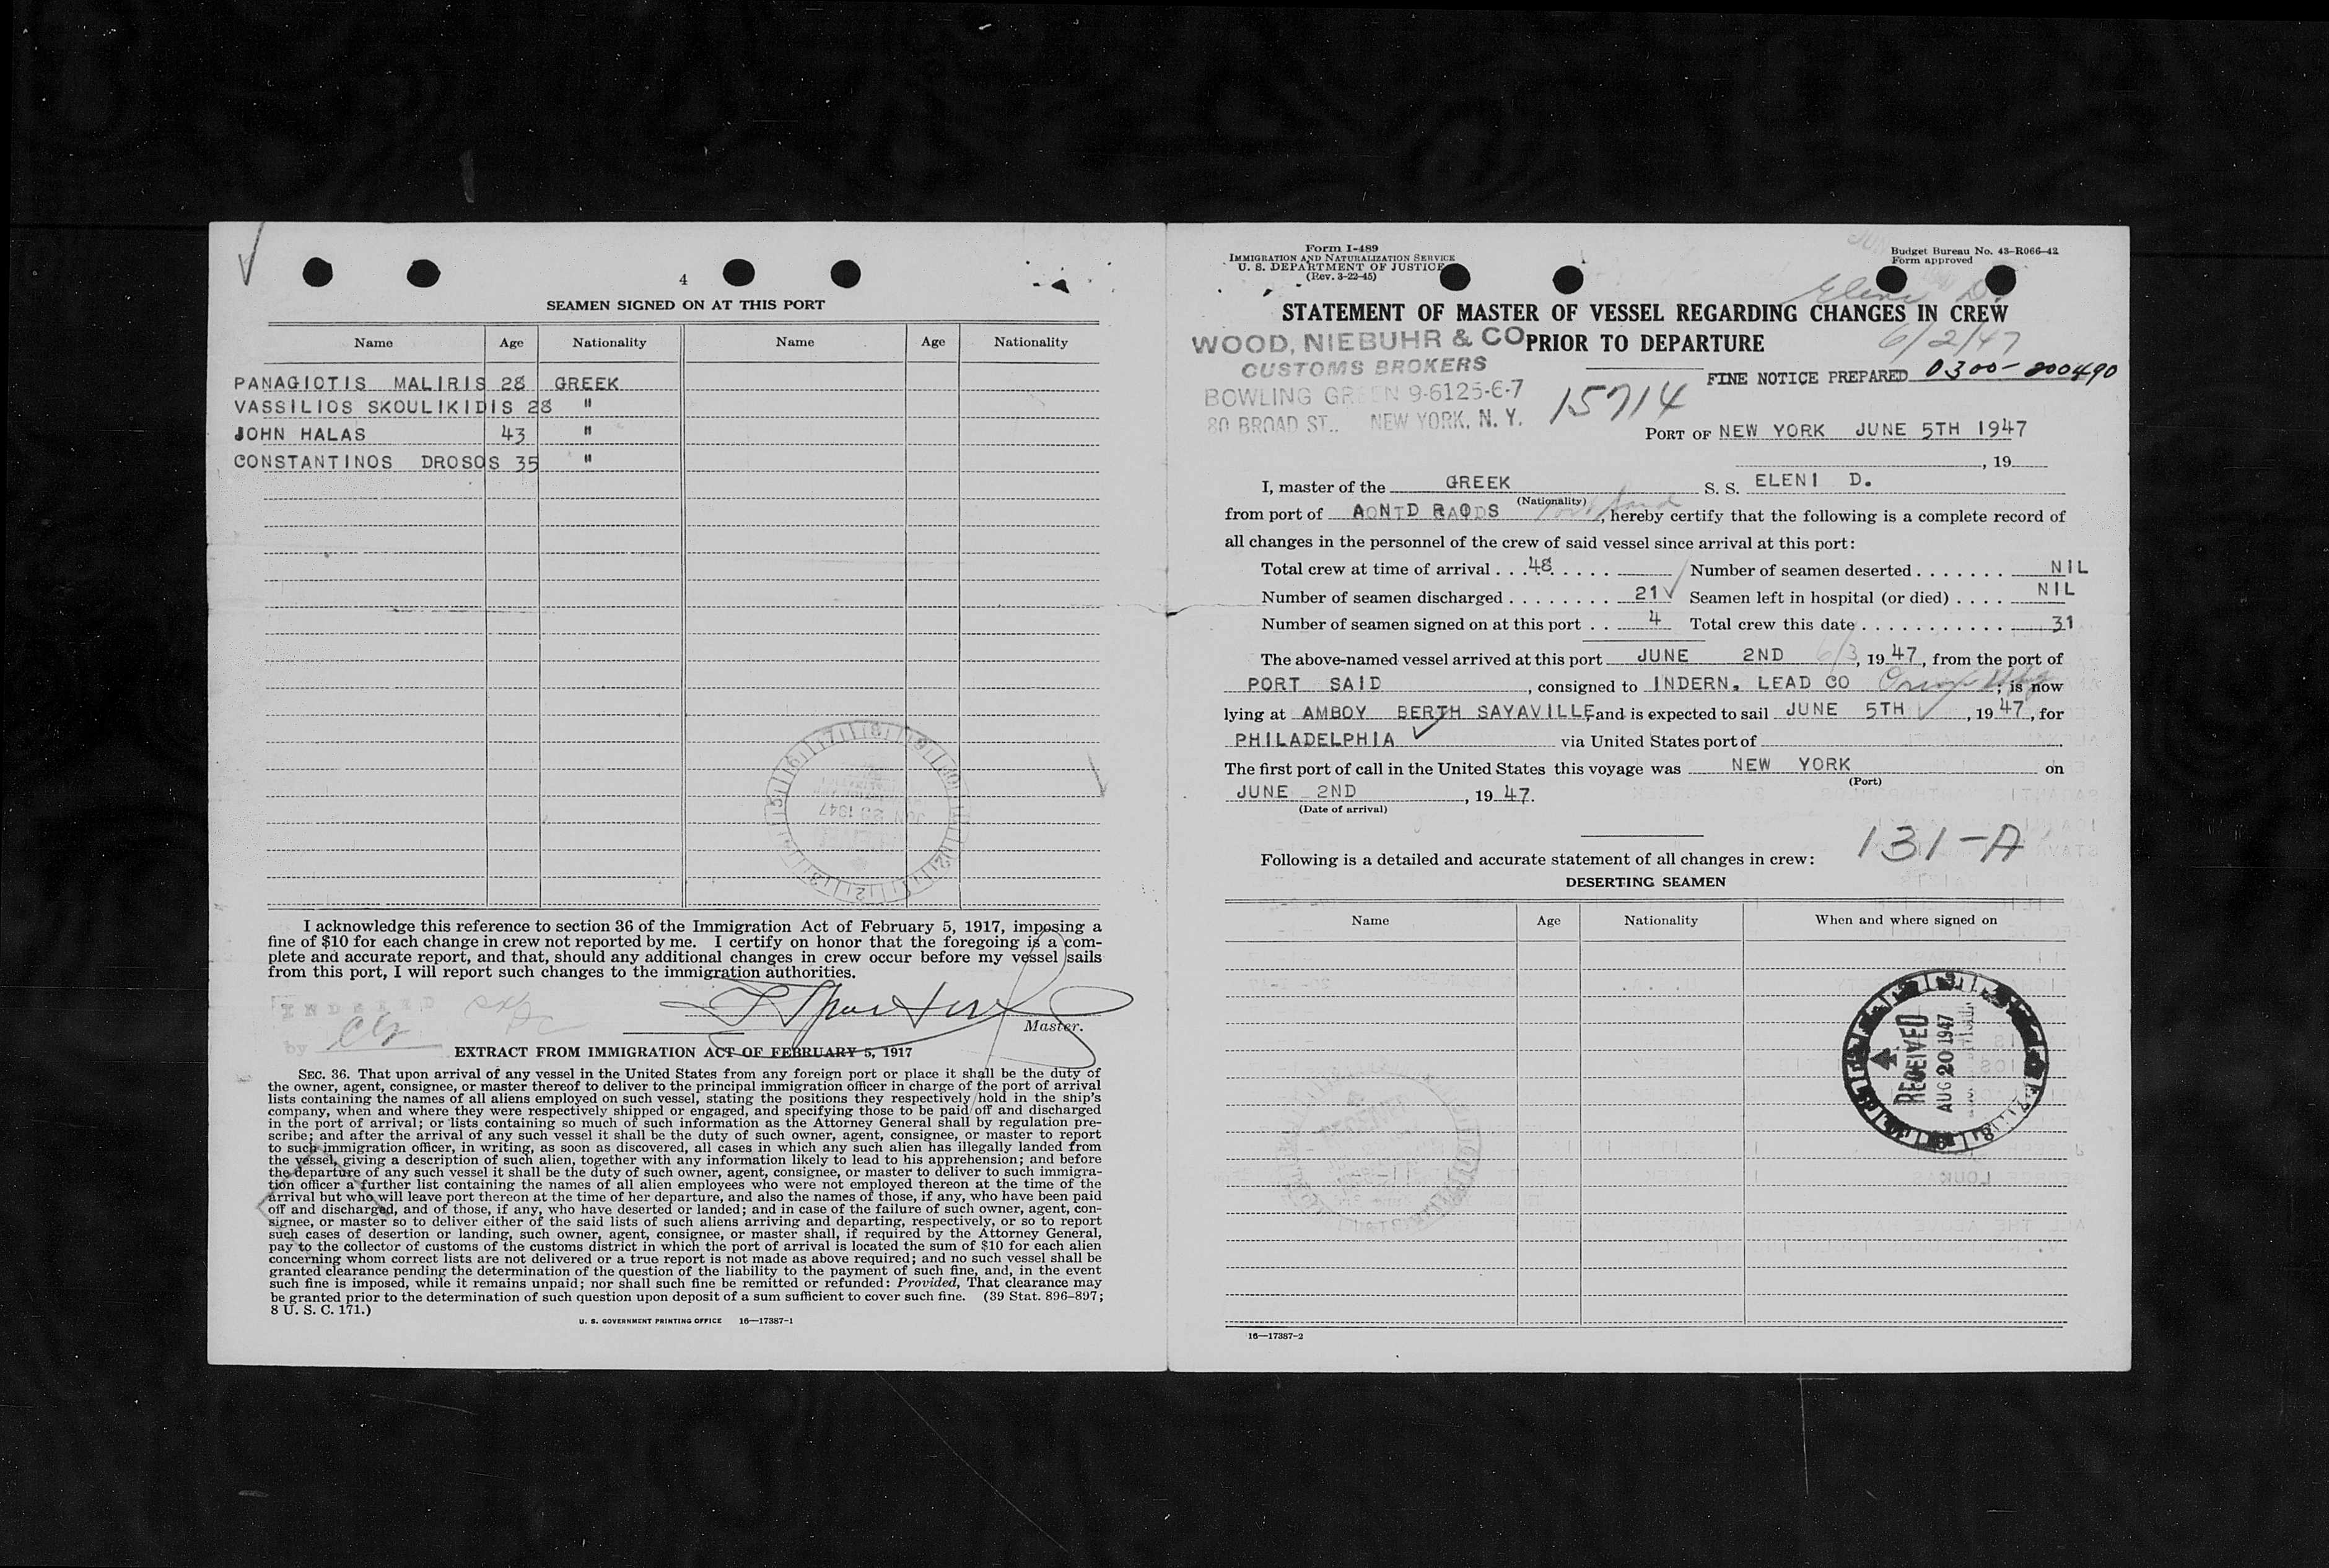 4
SEAMEN SIGNED ON AT THIS PORT
Name Age Nationality Name Age Nationality
PANAGIOTIS MALIRIS 28 GREEK
VASSILIOS SKOULIKIDIS 28 "
JOHN HALAS 43 "
CONSTANTINOS DROSOS 35 "
JUN 20 1947
I acknowledge this reference to section 36 of the Immigration Act of February 5, 1917, imposing a
fine of $10 for each change in crew not reported by me. I certify on honor that the foregoing is a com-
plete and accurate report, and that, should any additional changes in crew occur before my vessel sails
from this port, I will report such changes to the immigration authorities.
by
Master.
EXTRACT FROM IMMIGRATION ACT OF FEBRUARY 5, 1917
SEC. 36. That upon arrival of any vessel in the United States from any foreign port or place it shall be the duty of
the owner, agent, consignee, or master thereof to deliver to the principal immigration officer in charge of the port of arrival
lists containing the names of all aliens employed on such vessel, stating the positions they respectively hold in the ship's
company, when and where they were respectively shipped or engaged, and specifying those to be paid off and discharged
in the port of arrival; or lists containing so much of such information as the Attorney General shall by regulation pre-
scribe; and after the arrival of any such vessel it shall be the duty of such owner, agent, consignee, or master to report
to such immigration officer, in writing, as soon as discovered, all cases in which any such alien has illegally landed from
the vessel, giving a description of such alien, together with any information likely to lead to his apprehension; and before
the departure of any such vessel it shall be the duty of such owner, agent, consignee, or master to deliver to such immigra-
tion officer a further list containing the names of all alien employees who were not employed thereon at the time of the
arrival but who will leave port thereon at the time of her departure, and also the names of those, if any, who have been paid
off and discharged, and of those, if any, who have deserted or landed; and in case of the failure of such owner, agent, con-
signee, or master so to deliver either of the said lists of such aliens arriving and departing, respectively, or so to report
such cases of desertion or landing, such owner, agent, consignee, or master shall, if required by the Attorney General,
pay to the collector of customs of the customs district in which the port of arrival is located the sum of $10 for each alien
concerning whom correct lists are not delivered or a true report is not made as above required; and no such vessel shall be
granted clearance pending the determination of the question of the liability to the payment of such fine, and, in the event
such fine is imposed, while it remains unpaid; nor shall such fine be remitted or refunded: Provided, That clearance may
be granted prior to the determination of such question upon deposit of a sum sufficient to cover such fine. (39 Stat. 896–897;
8 U. S. C. 171.)
U. S. GOVERNMENT PRINTING OFFICE 16—17387-1
Form I-489
IMMIGRATION AND NATURALIZATION SERVICE
U. S. DEPARTMENT OF JUSTICE
(Rev. 3-22-45)
Budget Bureau No. 43-R066-42
Form approved
Eleni D.
STATEMENT OF MASTER OF VESSEL REGARDING CHANGES IN CREW
PRIOR TO DEPARTURE
6/2/47
WOOD, NIEBUHR & CO
CUSTOMS BROKERS
BOWLING GREEN 9-6125-6-7
80 BROAD ST., NEW YORK, N. Y.
15714
FINE NOTICE PREPARED 0300-800490
PORT OF NEW YORK JUNE 5TH 1947
, 19
I, master of the GREEK S. S. ELENI D.
(Nationality)
from port of Port Said, hereby certify that the following is a complete record of
all changes in the personnel of the crew of said vessel since arrival at this port:
Total crew at time of arrival . . . 48 . . . . . Number of seamen deserted . . . . . . . NIL
Number of seamen discharged . . . . . . . . 21 Seamen left in hospital (or died) . . . . NIL
Number of seamen signed on at this port . . 4 Total crew this date . . . . . . . . . . . . 31
The above-named vessel arrived at this port JUNE 2ND 6/3, 19 47, from the port of
PORT SAID, consigned to INDERN. LEAD CO ; is now
lying at AMBOY BERTH SAYAVILLE and is expected to sail JUNE 5TH, 19 47, for
PHILADELPHIA via United States port of
The first port of call in the United States this voyage was NEW YORK on
(Port)
JUNE 2ND, 19 47.
(Date of arrival)
131-A
Following is a detailed and accurate statement of all changes in crew:
DESERTING SEAMEN
Name Age Nationality When and where signed on
RECEIVED
AUG 20 1947
16—17387-2